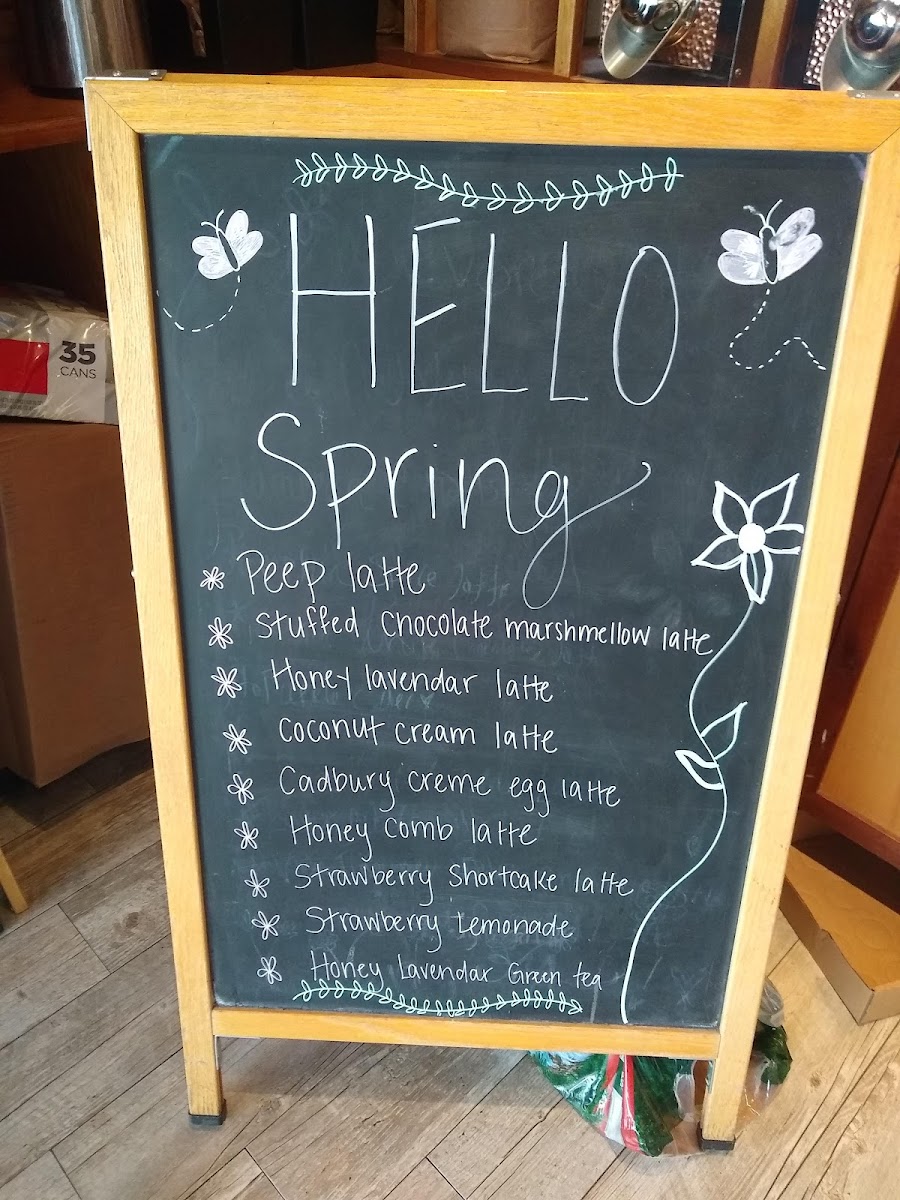 35
CANS
HELLO
Spring
Peep latte
Stuffed Chocolate marshmellow latte
Honey lavendar latte
coconut cream latte
Cadbury creme egg latte
Honey Comb latte
Strawberry Shortcake latte
Strawberry Lemonade
Honey Lavendar Green tea